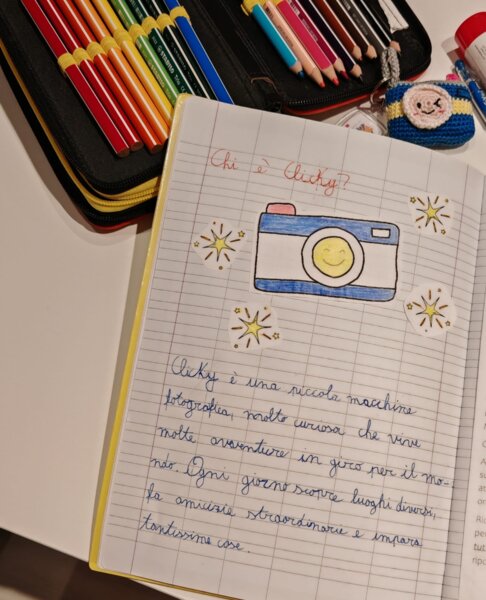 Chi è Clicky?
Clicky è una piccola macchina
fotografia, molto curiosa che vive
molte avventure in giro per il mo-
ndo. Ogni giorno scopre luoghi diversi,
fa amicizie straordinarie e impara
tantissime cose.